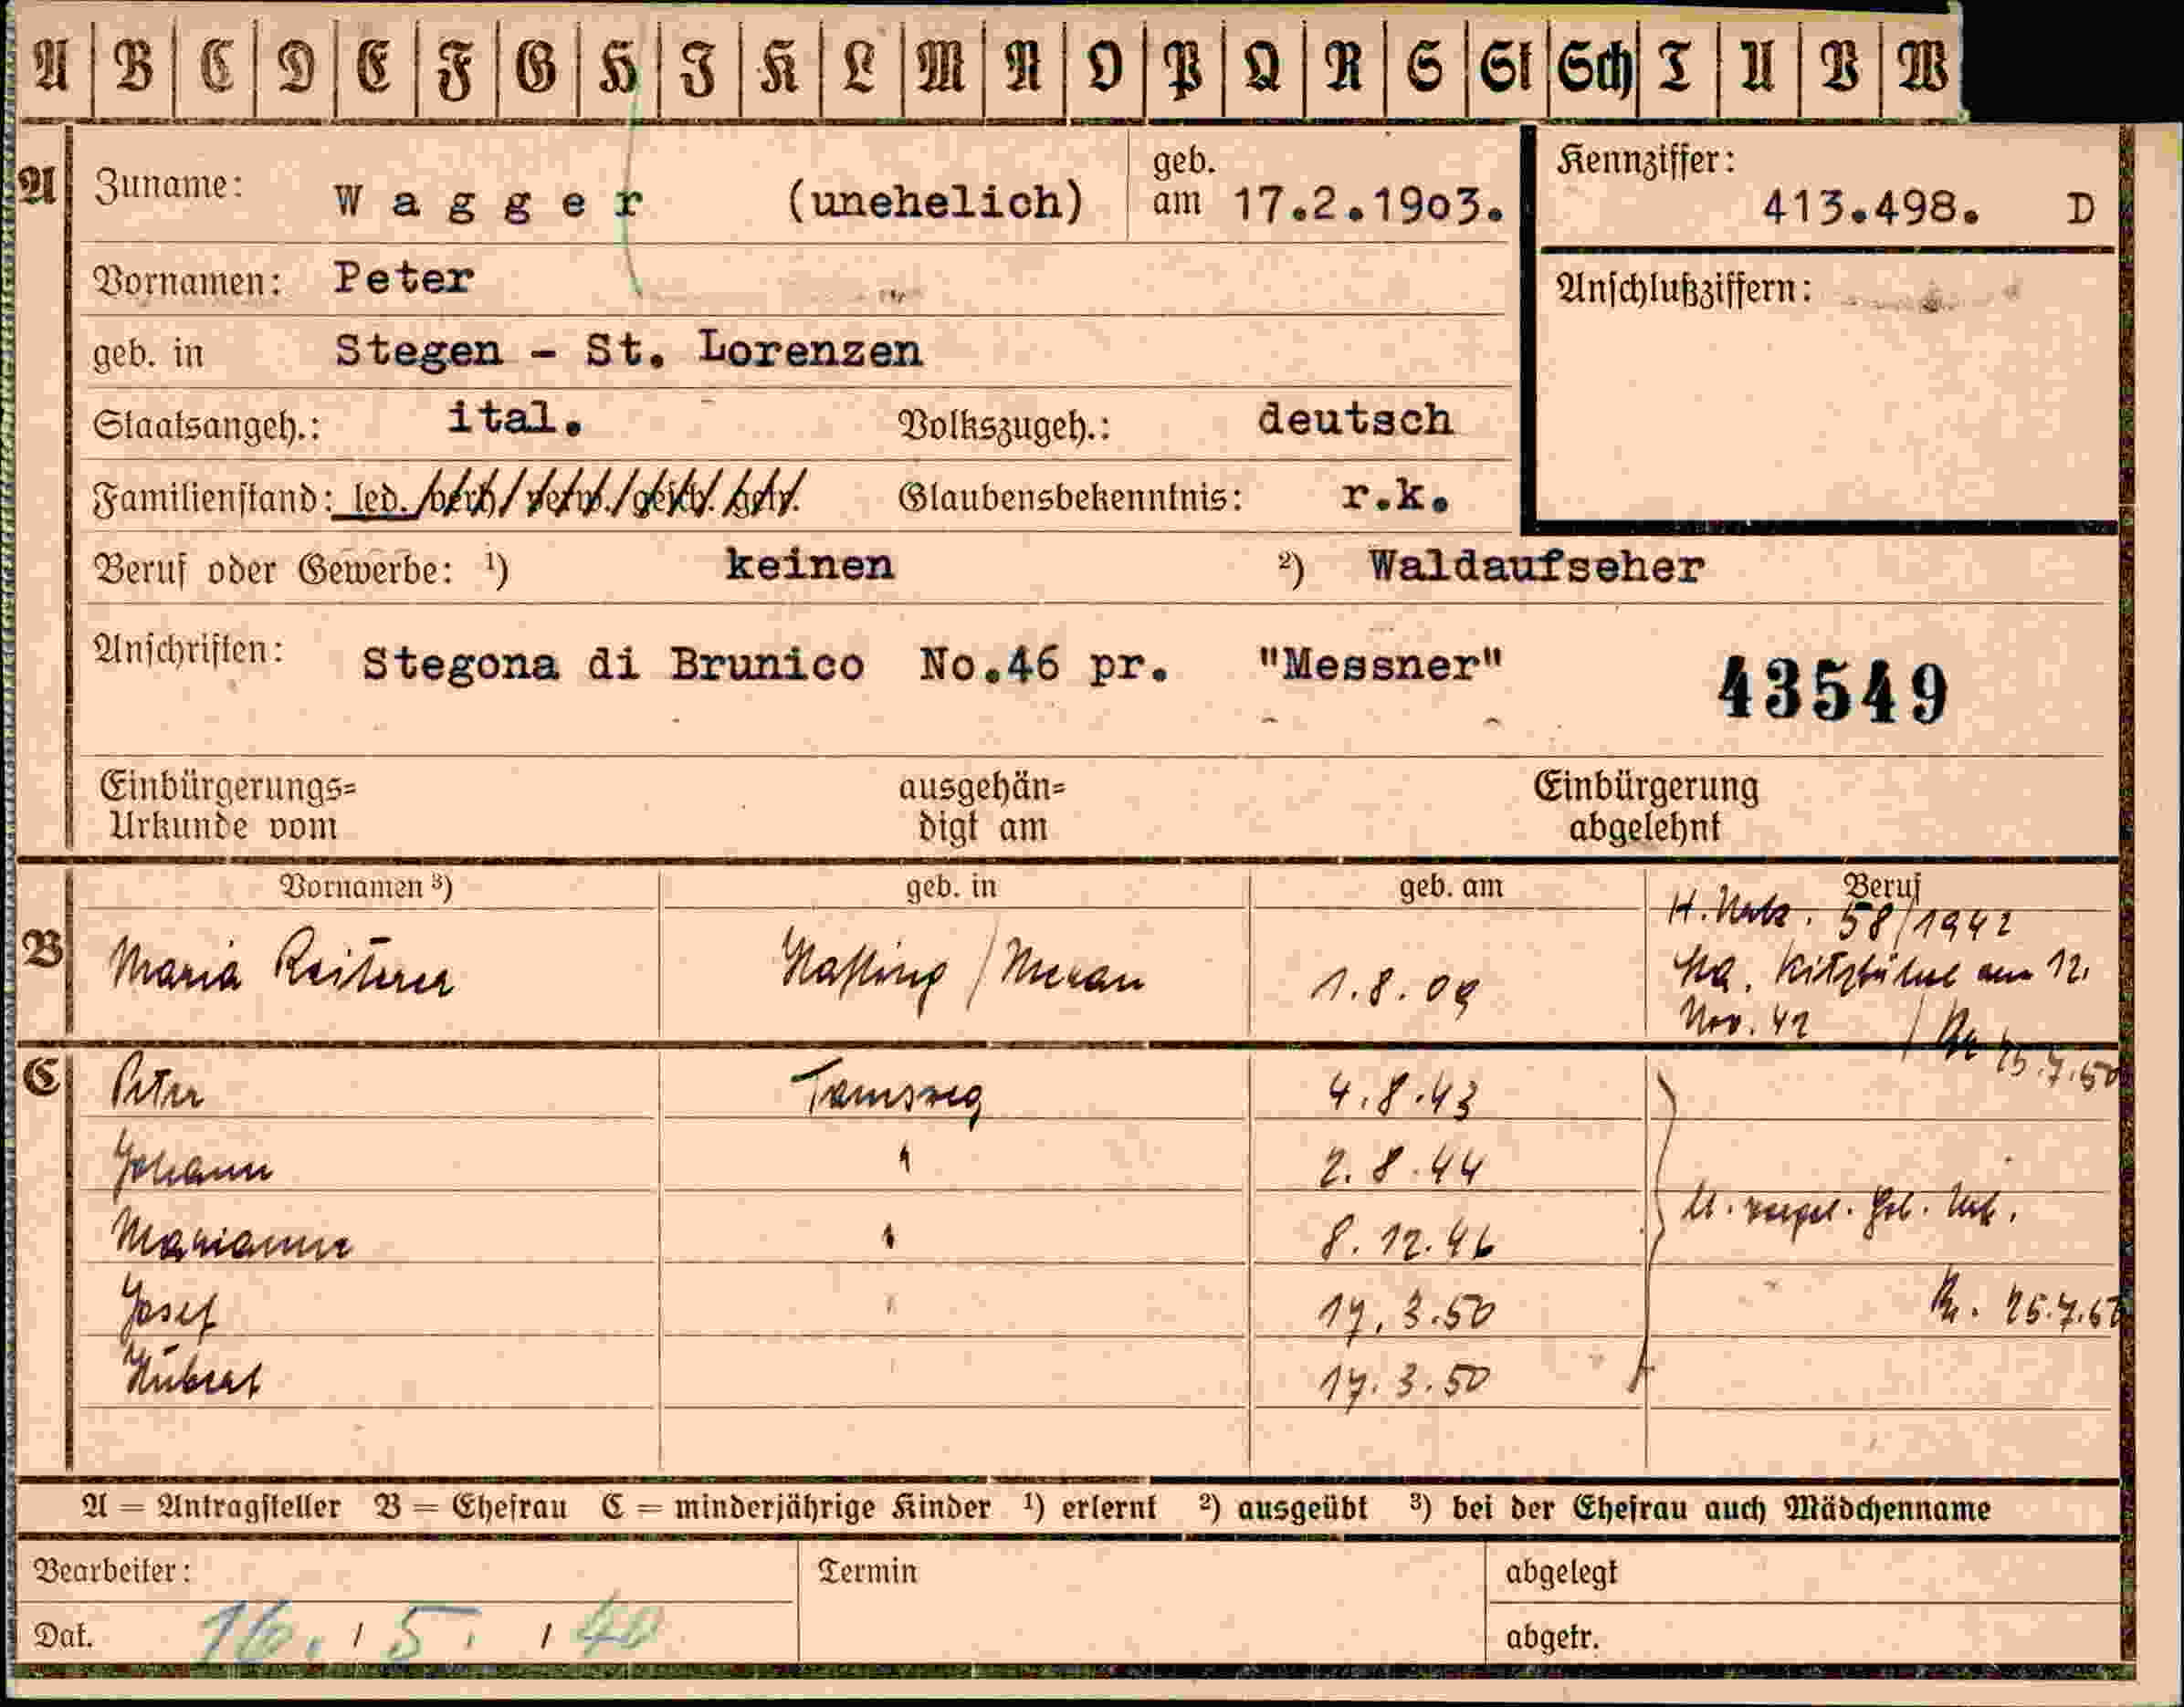 A B C D E F G H J K L M N O P Q R S St Sch T U V W
A Zuname: Wagger (unehelich) geb. am 17.2.1903. Kennziffer: 413.498. D
Vornamen: Peter
Anschlußziffern:
geb. in Stegen - St. Lorenzen
Staatsangeh.: ital. Volkszugeh.: deutsch
Familienstand: led. / verh. / verw. / gesch. / getr. Glaubensbekenntnis: r.k.
Beruf oder Gewerbe: ¹) keinen ²) Waldaufseher
Anschriften: Stegona di Brunico No.46 pr. "Messner" 43549
Einbürgerungs= ausgehän= Einbürgerung
Urkunde vom digt am abgelehnt
Vornamen ³) geb. in geb. am Beruf
H. 58/1942
B Maria Reiterer Hafling / Meran 1.8.09 Kitzbühel am 12.
Nov. 42 / 25.7.50
C Peter Tamsweg 4.8.43
Johann " 2.8.44
Marianne " 8.12.46
Josef " 17.3.50
Hubert 17.3.50
A = Antragsteller B = Ehefrau C = minderjährige Kinder ¹) erlernt ²) ausgeübt ³) bei der Ehefrau auch Mädchenname
Bearbeiter: Termin abgelegt
Dat. 16. / 5. / 40 abgetr.